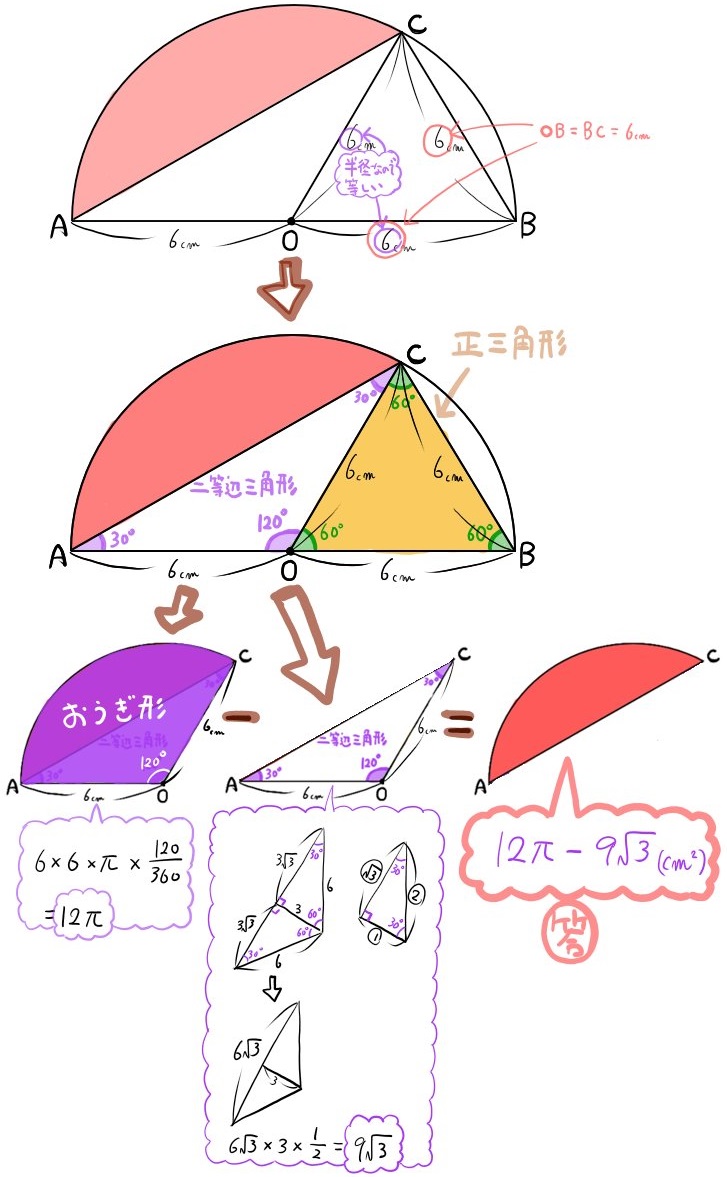 C
6cm
6cm
OB=BC=6cm
半径なので
等しい
A
O
B
6cm
6cm
正三角形
C
30°
60°
6cm
6cm
二等辺三角形
120°
30°
60°
60°
A
O
B
6cm
6cm
C
30°
おうぎ形
6cm
二等辺三角形
120°
30°
A
O
6cm
−
C
30°
6cm
二等辺三角形
120°
30°
A
O
6cm
=
C
A
6×6×π×120/360
=12π
3√3
30°
6
3√3
3
60°
60°
30°
6
√3
30°
2
30°
1
6√3
3
6√3×3×1/2=9√3
12π−9√3(cm²)
答